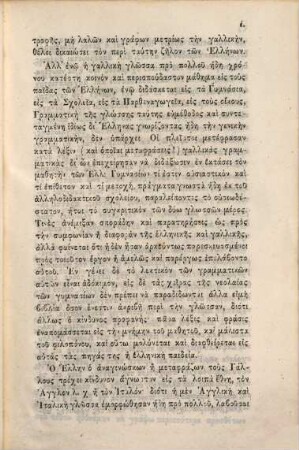 τροφῆς, μὴ λαλῶν καὶ γράφων μετρίως τὴν γαλλικὴν,
θέλει δικαιώσει τὸν περὶ ταύτην ζῆλον τῶν Ἑλλήνων.
Ἀλλ' ἐνῷ ἡ γαλλικὴ γλῶσσα πρὸ πολλοῦ ἤδη χρό-
νου κατέστη κοινὸν καὶ περισπούδαστον μάθημα εἰς τοὺς
παῖδας τῶν Ἑλλήνων, ἐνῷ διδάσκεται εἰς τὰ Γυμνάσια,
εἰς τὰ Σχολεῖα, εἰς τὰ Παρθεναγωγεῖα, εἰς τοὺς οἴκους,
Γραμματικὴ τῆς γλώσσης ταύτης εὐμέθοδος καὶ συντε-
ταγμένη ἰδίως δι' Ἕλληνας γνωρίζοντας ἤδη τὴν γενικὴν
γραμματικὴν, δὲν ὑπάρχει. Οἱ πλεῖστοι μετέφρασαν
κατὰ λέξιν (καὶ ὁποῖαι μεταφράσεις!) γαλλικὰς γραμ-
ματικὰς δι' ὧν ἐπεχείρησαν νὰ διδάξωσιν ἐν ἐκτάσει τὸν
μαθητὴν τῶν Ἑλλ. Γυμνασίων τί ἐστιν οὐσιαστικὸν καὶ
τί ἐπίθετον καὶ τί μετοχὴ, πράγματα γνωστὰ ἤδη ἐκ τοῦ
ἀλληλοδιδακτικοῦ σχολείου, παραλείποντες τὸ οὐσιωδέ-
στατον, ἤτοι τὸ συγκριτικὸν τῶν δύω γλωσσῶν μέρος.
Τινὲς ἀνέμιξαν σποράδην καὶ παρατηρήσεις ὡς πρὸς
τὴν συμφωνίαν ἢ διαφορὰν τῆς ἑλληνικῆς καὶ γαλλικῆς,
ἀλλὰ φαίνεται ὅτι ἢ δὲν ἦσαν ἀρκούντως παρεσκευασμένοι
πρὸς τοιοῦτον ἔργον ἢ ἀμελῶς καὶ παρέργως ἐπελάβοντο
αὐτοῦ. Ἐν γένει δὲ τὸ λεκτικὸν τῶν γραμματικῶν
αὐτῶν εἶναι ἀδόκιμον, εἰς δὲ τὰς χεῖρας τῆς νεολαίας
τῶν γυμνασίων δὲν πρέπει νὰ παραδίδωνται ἄλλα εἰμὴ
βιβλία ὅσον ἔνεστιν ἀκριβῆ περὶ τὴν γλῶσσαν, διότι
ἄλλως ὁ κίνδυνος προφανής· ποία λέξις καὶ φράσις
ἐναπομάσσεται εἰς τὴν μνήμην τοῦ μαθητοῦ, καὶ μάλιστα
τοῦ φιλοπόνου, καὶ οὕτω μολύνεται καὶ διαφθείρεται εἰς
αὐτὰς τὰς πηγάς της ἡ ἑλληνικὴ παιδεία.
Ὁ Ἕλλην ὁ ἀναγινώσκων ἢ μεταφράζων τοὺς Γάλ-
λους τρέχει κίνδυνον ἄγνωστον εἰς τὰ λοιπὰ ἔθνη, τὸν
Ἄγγλον λ. χ. ἢ τὸν Ἰταλόν· διότι ἡ μὲν Ἀγγλικὴ καὶ
Ἰταλικὴ γλῶσσα ἐμορφώθησαν ἤδη πρὸ πολλοῦ, λαβοῦσαι